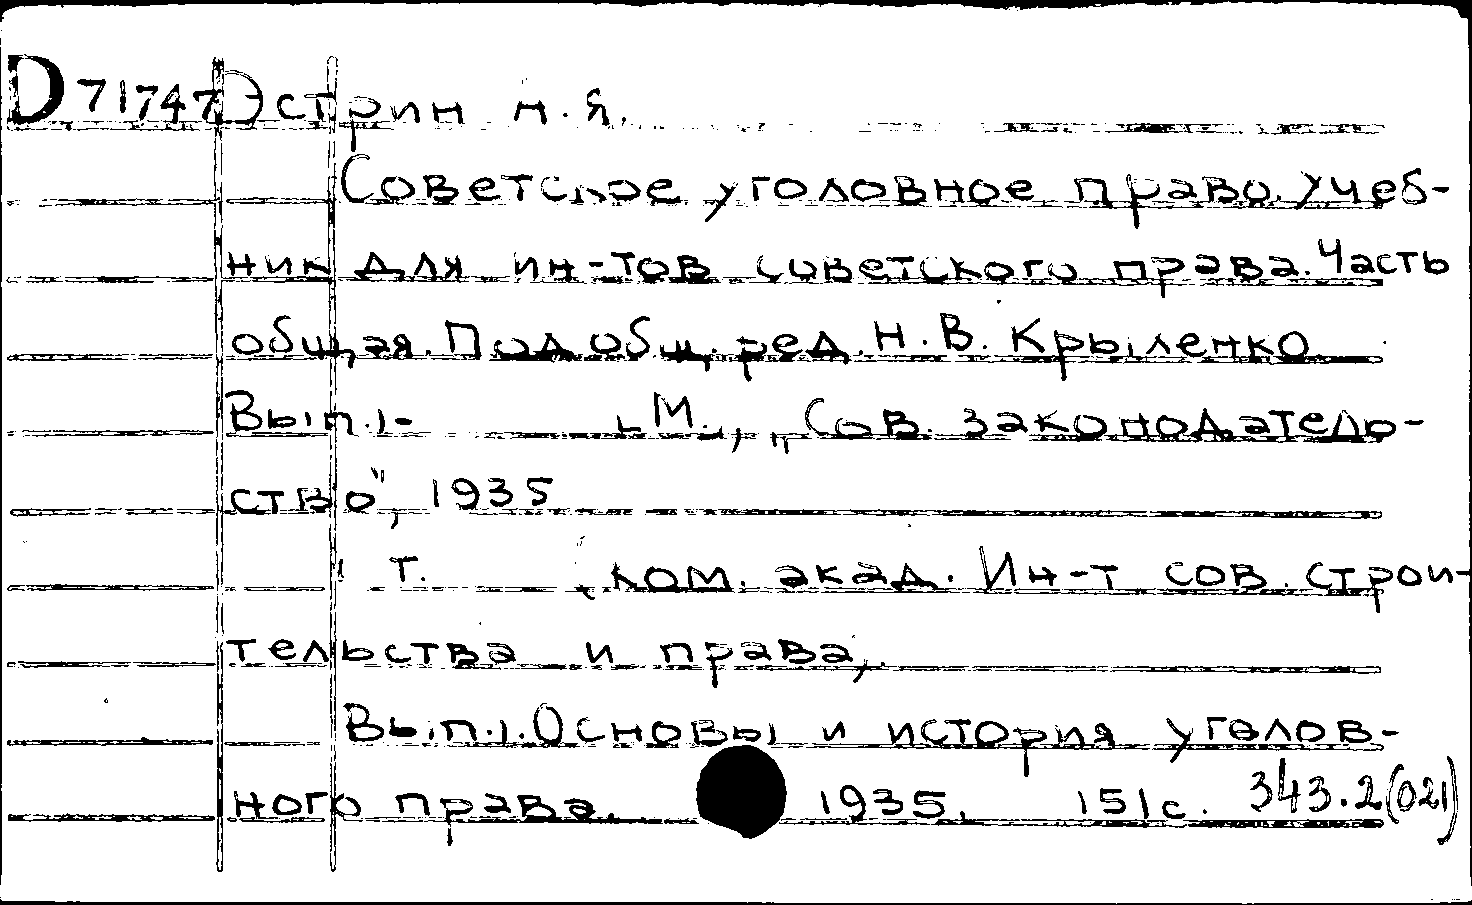 D 71747 Эстрин Н.Я.
Советское уголовное право. Учеб-
ник для ин-тов советского права. Часть
общая. Под общ. ред. Н.В. Крыленко
Вып.1- М., „Сов. законодатель-
ство", 1935
т. (ком. акад. Ин-т сов. строи-
тельства и права,
Вып.1. Основы и история уголов-
ного права. 1935. 151с. 343.2(021)